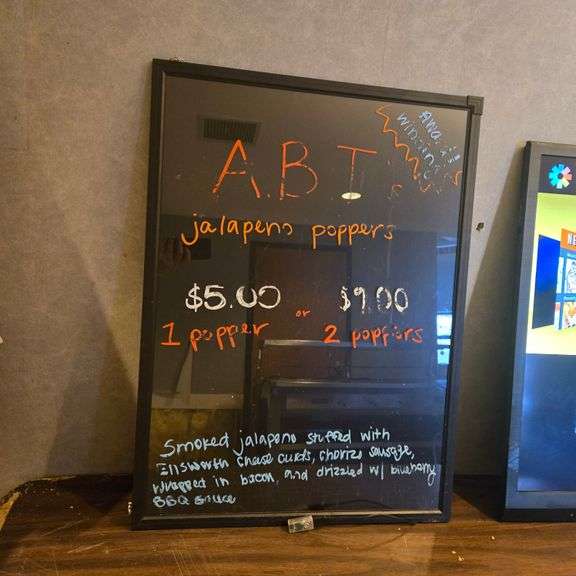 Award
winning
A.B.T.'s
jalapeno poppers
$5.00 or $9.00
1 popper 2 poppers
Smoked jalapeno stuffed with
Ellsworth cheese curds, chorizo sausage,
wrapped in bacon, and drizzled w/ blueberry
BBQ sauce
NE